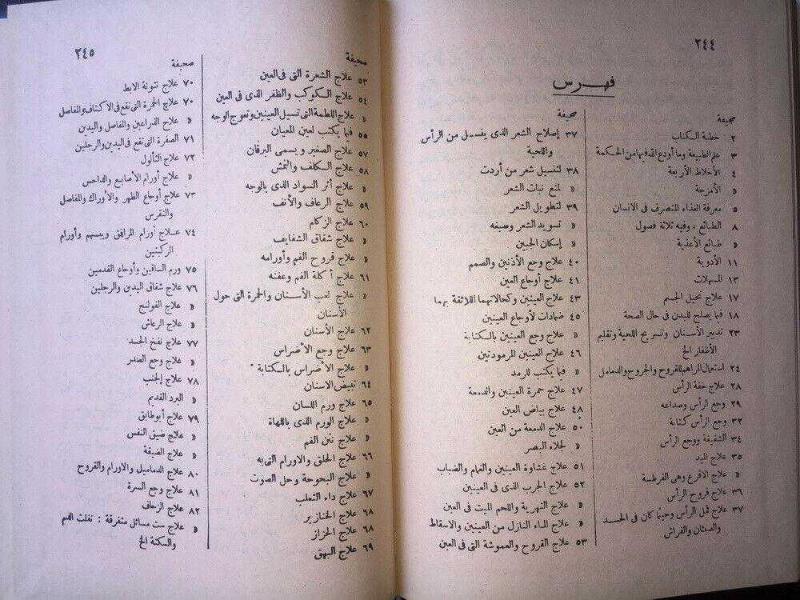 ٢٤٤
فهرس
صحيفة
٢ خطبة الكتاب
٣ علم الطبيعة وما أودع الله فيها من الحكمة
٤ الأخلاط الأربعة
» الأمزجة
٥ معرفة الغذاء المتصرف فى الانسان
٨ الطبائع ، وفيه ثلاثة فصول
» طبائع الأغذية
١١ الأدوية
١٣ المسهلات
١٧ علاج تحيل الجسم
١٨ فيما يصلح للبدن فى حال الصحة
٢٣ تدبير الأسنان وتسريح اللحية وتقليم
الأظفار الخ
٢٤ استعمال المراهم للقروح والجروح والدمامل
٢٨ علاج خفة الرأس
٢٩ وجع الرأس وصداعه
٣٢ وجع الرأس كتابة
٣٤ الشقيقة ووجع الرأس
٣٥ علاج
» علاج الاقرع وهى القرطسة
٣٦ علاج قروح الرأس
٣٧ علاج قمل الرأس وحيثما كان فى الجسد
والصئبان والفراش
صحيفة
٣٧ إصلاح الشعر الذى يغسل من الرأس
واللحية
٣٨ لتغسيل شعر من أردت
» لمنع نبات الشعر
٣٩ لتطويل الشعر
» تسويد الشعر وصبغه
» إسكان الجبين
٤٠ علاج وجع الأذنين والصمم
٤١ علاج أوجاع العين
٤٣ علاج العينين وكحالاتهما اللائقة بهما
٤٥ ضمادات لأوجاع العينين
» علاج وجع العينين بالكتابة
٤٦ علاج العينين المرمودتين
» فيما يكتب للرمد
٤٧ علاج حمرة العينين والدمعة
٤٨ علاج بياض العين
٥٠ علاج الدمعة من العين
» لجلاء البصر
٥١ علاج غشاوة العينين والغمام والضباب
٥٢ علاج الجرب الذى فى العينين
» علاج الشهرية واللحم الميت فى العين
» علاج الماء النازل من العينين والاسقاط
٥٣ علاج القروح والعموشة التى فى العين
٢٤٥
صحيفة
٥٣ علاج الشعرة التى فى العين
٥٤ علاج الكوكب والظفر الذى فى العين
» علاج اللطمة التى تسيل العينين وتعوج الوجه
٥٥ فيما يكتب لعين المعيان
٥٧ علاج الصفير ويسمى اليرقان
٥٨ علاج الكلف والنمش
» علاج أثر السواد الذى بالوجه
٥٩ علاج الرعاف والأنف
٦٠ علاج الزكام
» علاج شقاق الشفايف
» علاج قروح الفم وأورامه
٦١ علاج أكلة الفم وعفنه
» علاج لعب الأسنان والحمرة التى حول
الأسنان
٦٢ علاج الأسنان
٦٣ علاج وجع الأضراس
» علاج الأضراس بالكتابة
٦٤ تبييض الاسنان
٦٥ علاج ورم اللسان
» علاج الورم الذى باللهاة
» علاج نتن الفم
٦٦ علاج الحلق والاورام التى به
» علاج البحوحة وحل الصوت
٦٧ علاج داء الثعلب
٦٨ علاج الخنازير
٦٨ علاج الحزاز
٦٩ علاج البهق
صحيفة
٧٠ علاج نتونة الابط
٧٠ علاج الحمرة التى تقع فى الاكتاف والمفاصل
» علاج الذراعين والمفاصل واليدين
٧١ الصفرة التى تقع فى اليدين والرجلين
٧٢ علاج الثآلول
» علاج أورام الأصابع والداحس
٧٣ علاج أوجاع الظهر والأوراك والمفاصل
والنقرس
٧٤ علاج أورام المرافق ويبسهم وأورام
الركبتين
٧٥ ورم الساقين وأوجاع القدمين
٧٦ علاج شقاق اليدين والرجلين
» علاج القولنج
» علاج الرعاش
٧٧ علاج نفخ الجسد
» علاج وجع الصدر
٧٨ علاج الجنب
» البرد القديم
٧٩ علاج أبوطابق
» علاج ضيق النفس
» علاج الضيقة
٨٠ علاج الدماميل والاورام والقروح
٨١ علاج وجع السرة
٨٢ علاج الزحاف
» علاج ست مسائل متفرقة : تفلت الفم
والسكتة الخ